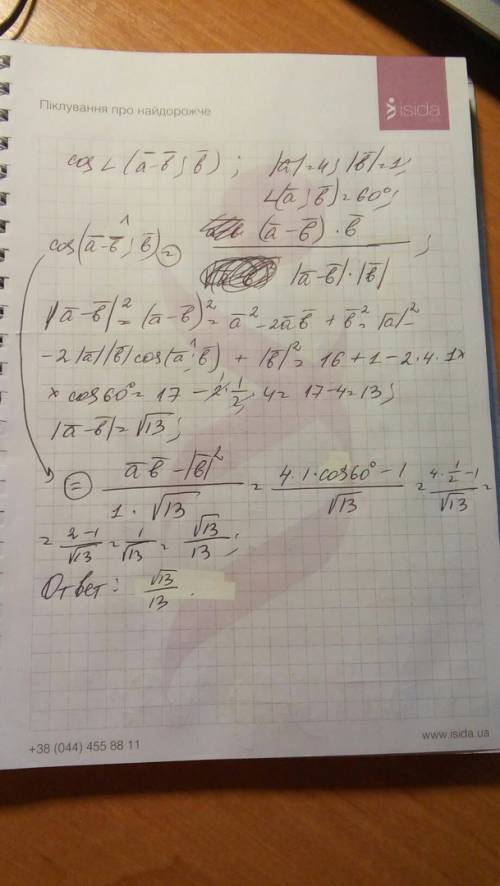 isida
Піклування про найдорожче
cos∠(a̅-b̅; b̅); |a̅|=4; |b̅|=1;
∠(a̅; b̅)=60°;
cos(a̅-b̅ ^; b̅) = (a̅-b̅)·b̅ / |a̅-b̅|·|b̅| ;
|a̅-b̅|² = (a̅-b̅)² = a̅² - 2a̅b̅ + b̅² = |a̅|² -
-2|a̅||b̅|cos(a̅ ^; b̅) + |b̅|² = 16+1-2·4·1×
× cos60° = 17 - 2·1/2·4 = 17-4=13;
|a̅-b̅|=√13;
= a̅b̅-|b̅|² / 1·√13 = 4·1·cos60°-1 / √13 = 4·1/2-1 / √13 =
= 2-1/√13 = 1/√13 = √13/13;
Ответ: √13/13.
www.isida.ua
+38 (044) 455 88 11